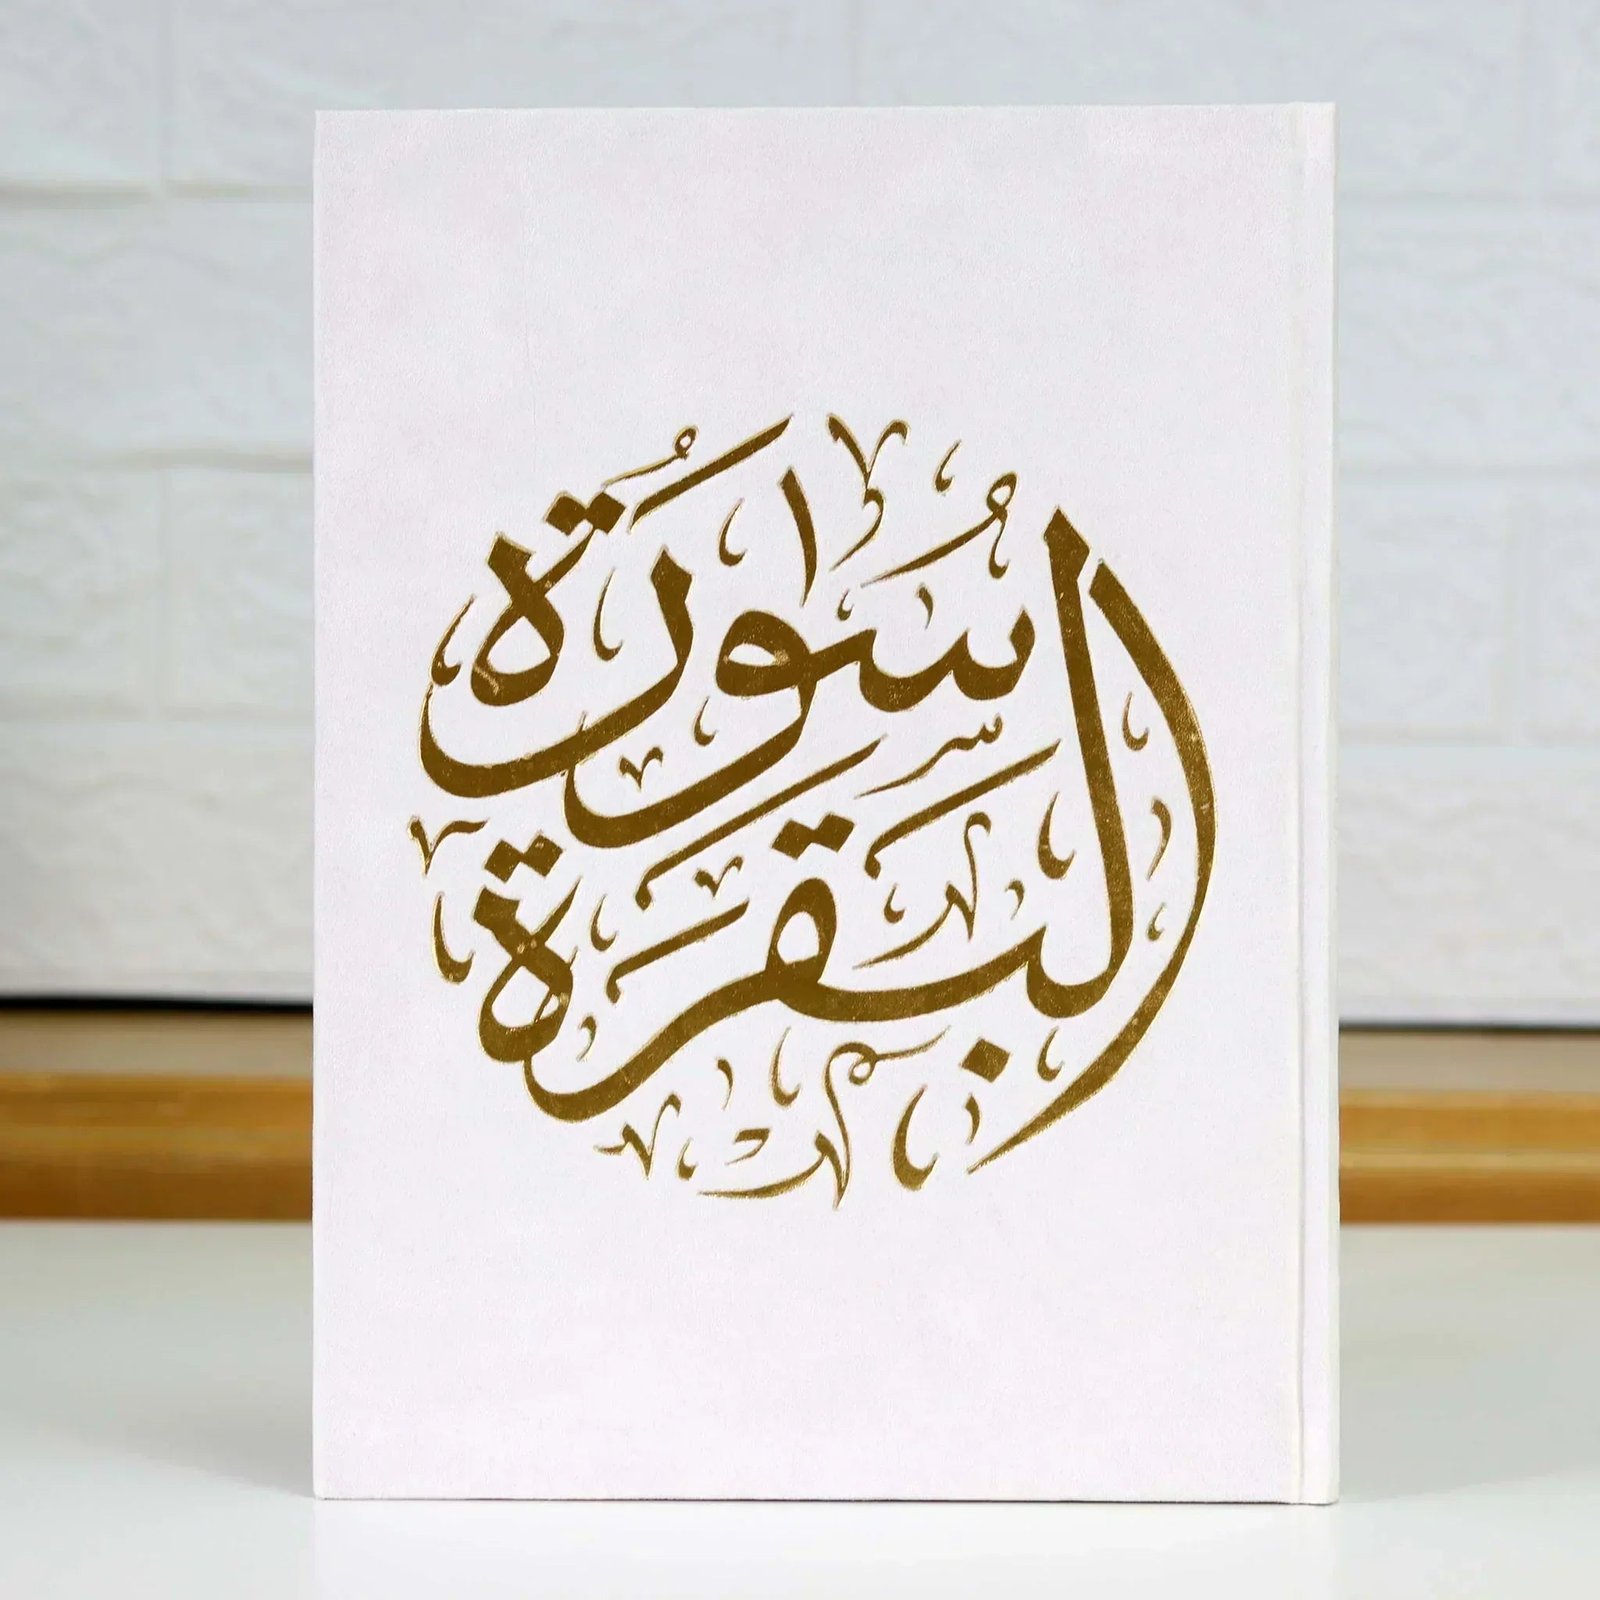 سورة
البقرة